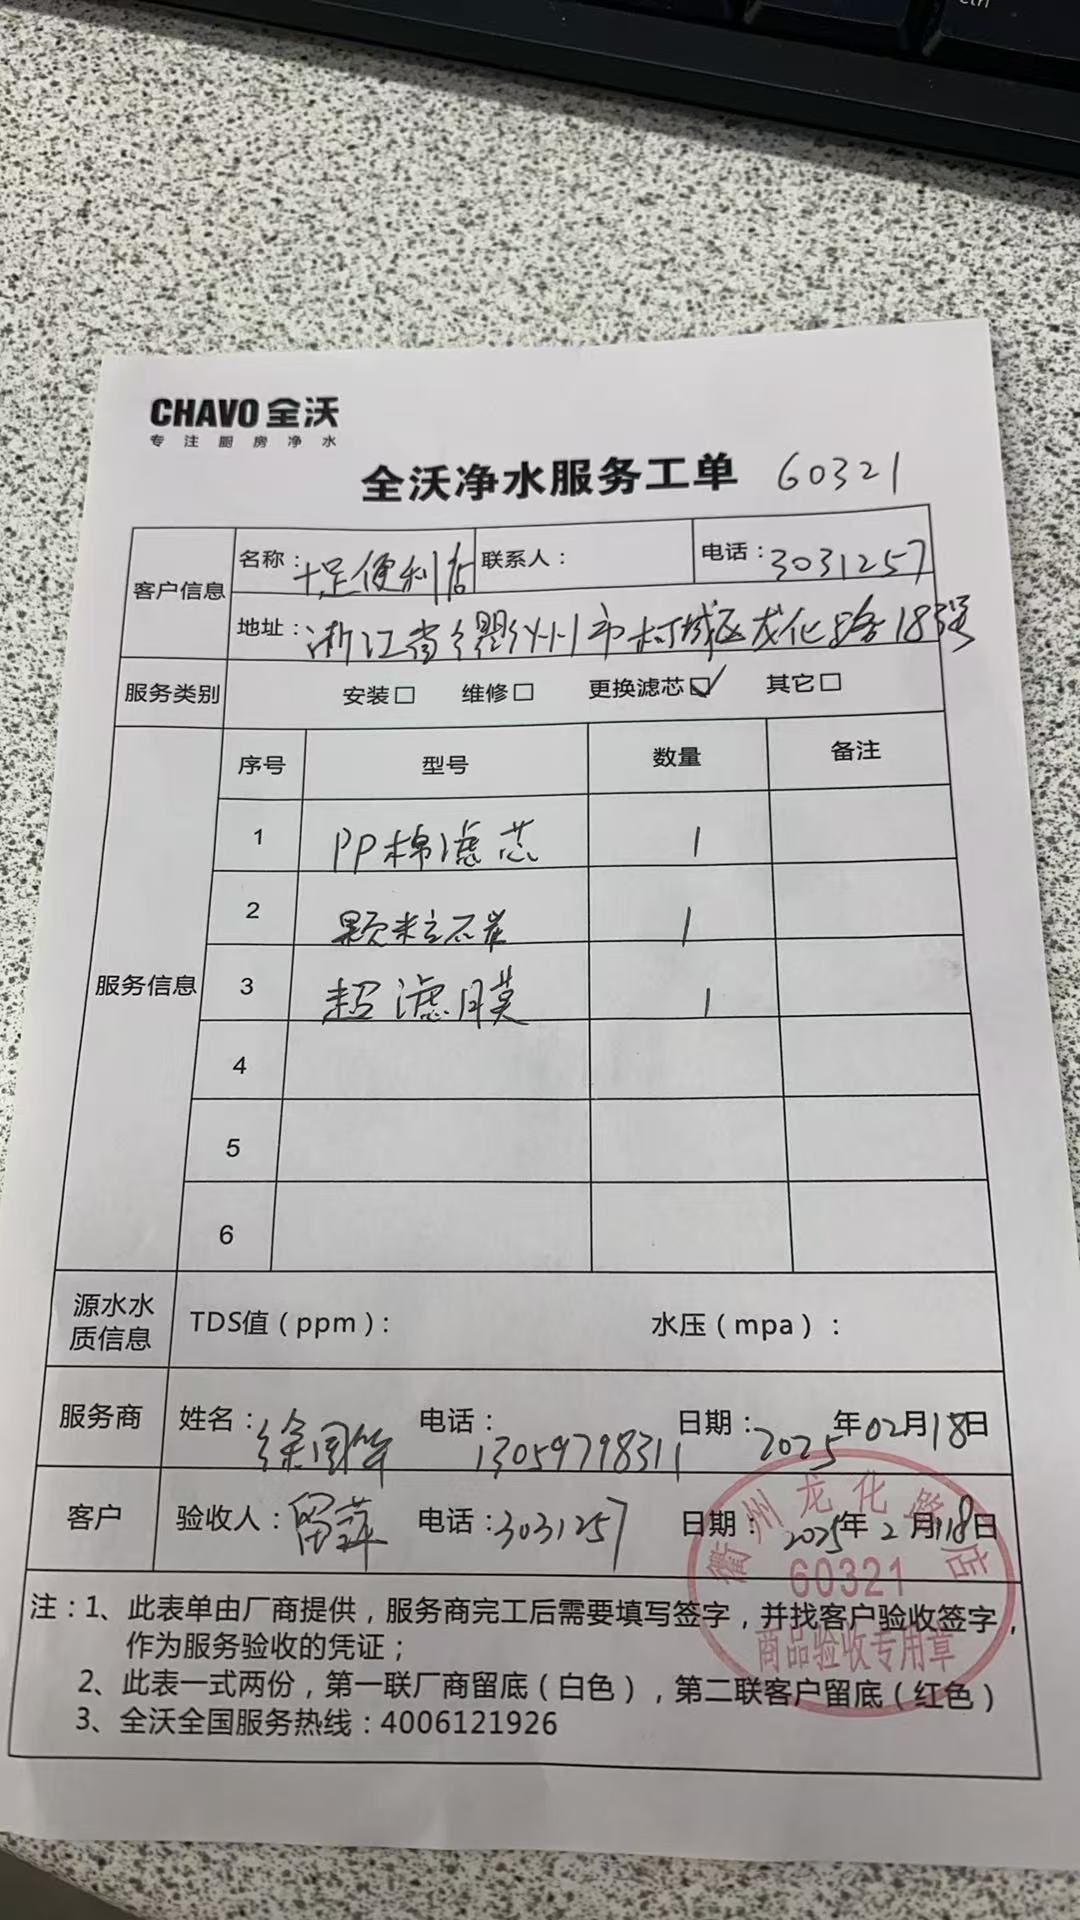 Ctrl
CHAVO 全沃
专注厨房净水
全沃净水服务工单 60321
客户信息 名称：十足便利店 联系人： 电话：3031257
地址：浙江省衢州市柯城区龙化路18号
服务类别 安装□ 维修□ 更换滤芯☑ 其它□
服务信息 序号 型号 数量 备注
1 PP棉滤芯 1
2 颗粒石炭 1
3 超滤膜 1
4
5
6
源水水质信息 TDS值（ppm）： 水压（mpa）：
服务商 姓名：徐国华 电话：13059798311 日期：2025年02月18日
客户 验收人：留萍 电话：3031257 日期：2025年2月18日
衢州龙化路店
60321
商品验收专用章
注：1、此表单由厂商提供，服务商完工后需要填写签字，并找客户验收签字，
作为服务验收的凭证；
2、此表一式两份，第一联厂商留底（白色），第二联客户留底（红色）
3、全沃全国服务热线：4006121926